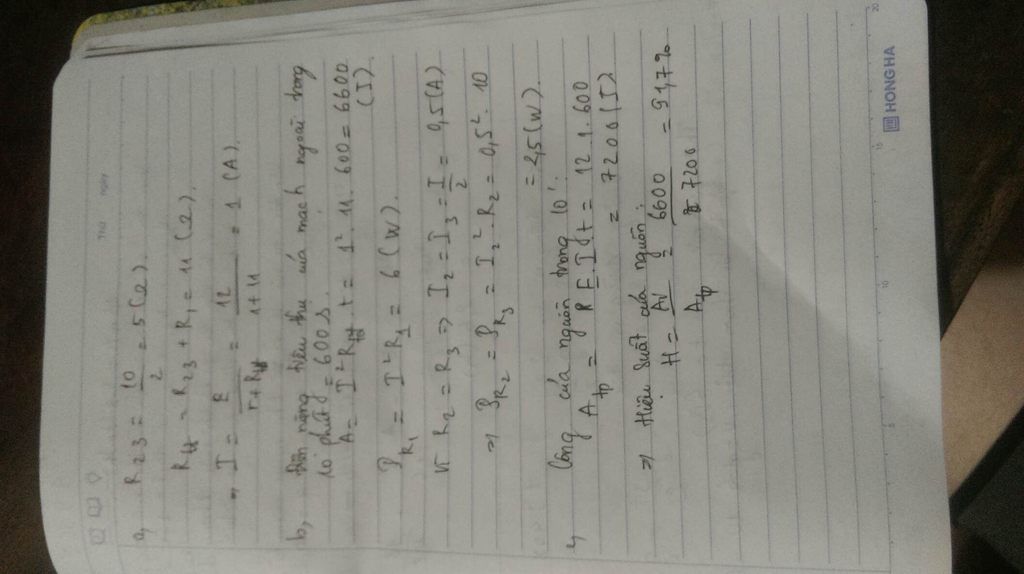 Thứ ngày
a, R23 = 10/2 = 5 (Ω).
Rtđ = R23 + R1 = 11 (Ω).
⇒ I = E/(r+Rtđ) = 12/(1+11) = 1 (A).
b, Điện năng tiêu thụ của mạch ngoài trong
10 phút = 600s.
A = I²Rtđ.t = 1².11.600 = 6600
(J).
PR1 = I²R1 = 6 (W).
Vì R2 = R3 ⇒ I2 = I3 = I/2 = 0,5 (A)
⇒ PR2 = PR3 = I2².R2 = 0,5².10
= 2,5 (W).
Công của nguồn trong 10'.
E.I.t = 12.1.600
= 7200 (J)
⇒ Hiệu suất của nguồn:
H = = 6600/7200 = 91,7%
HONG HA
5 10 15 20